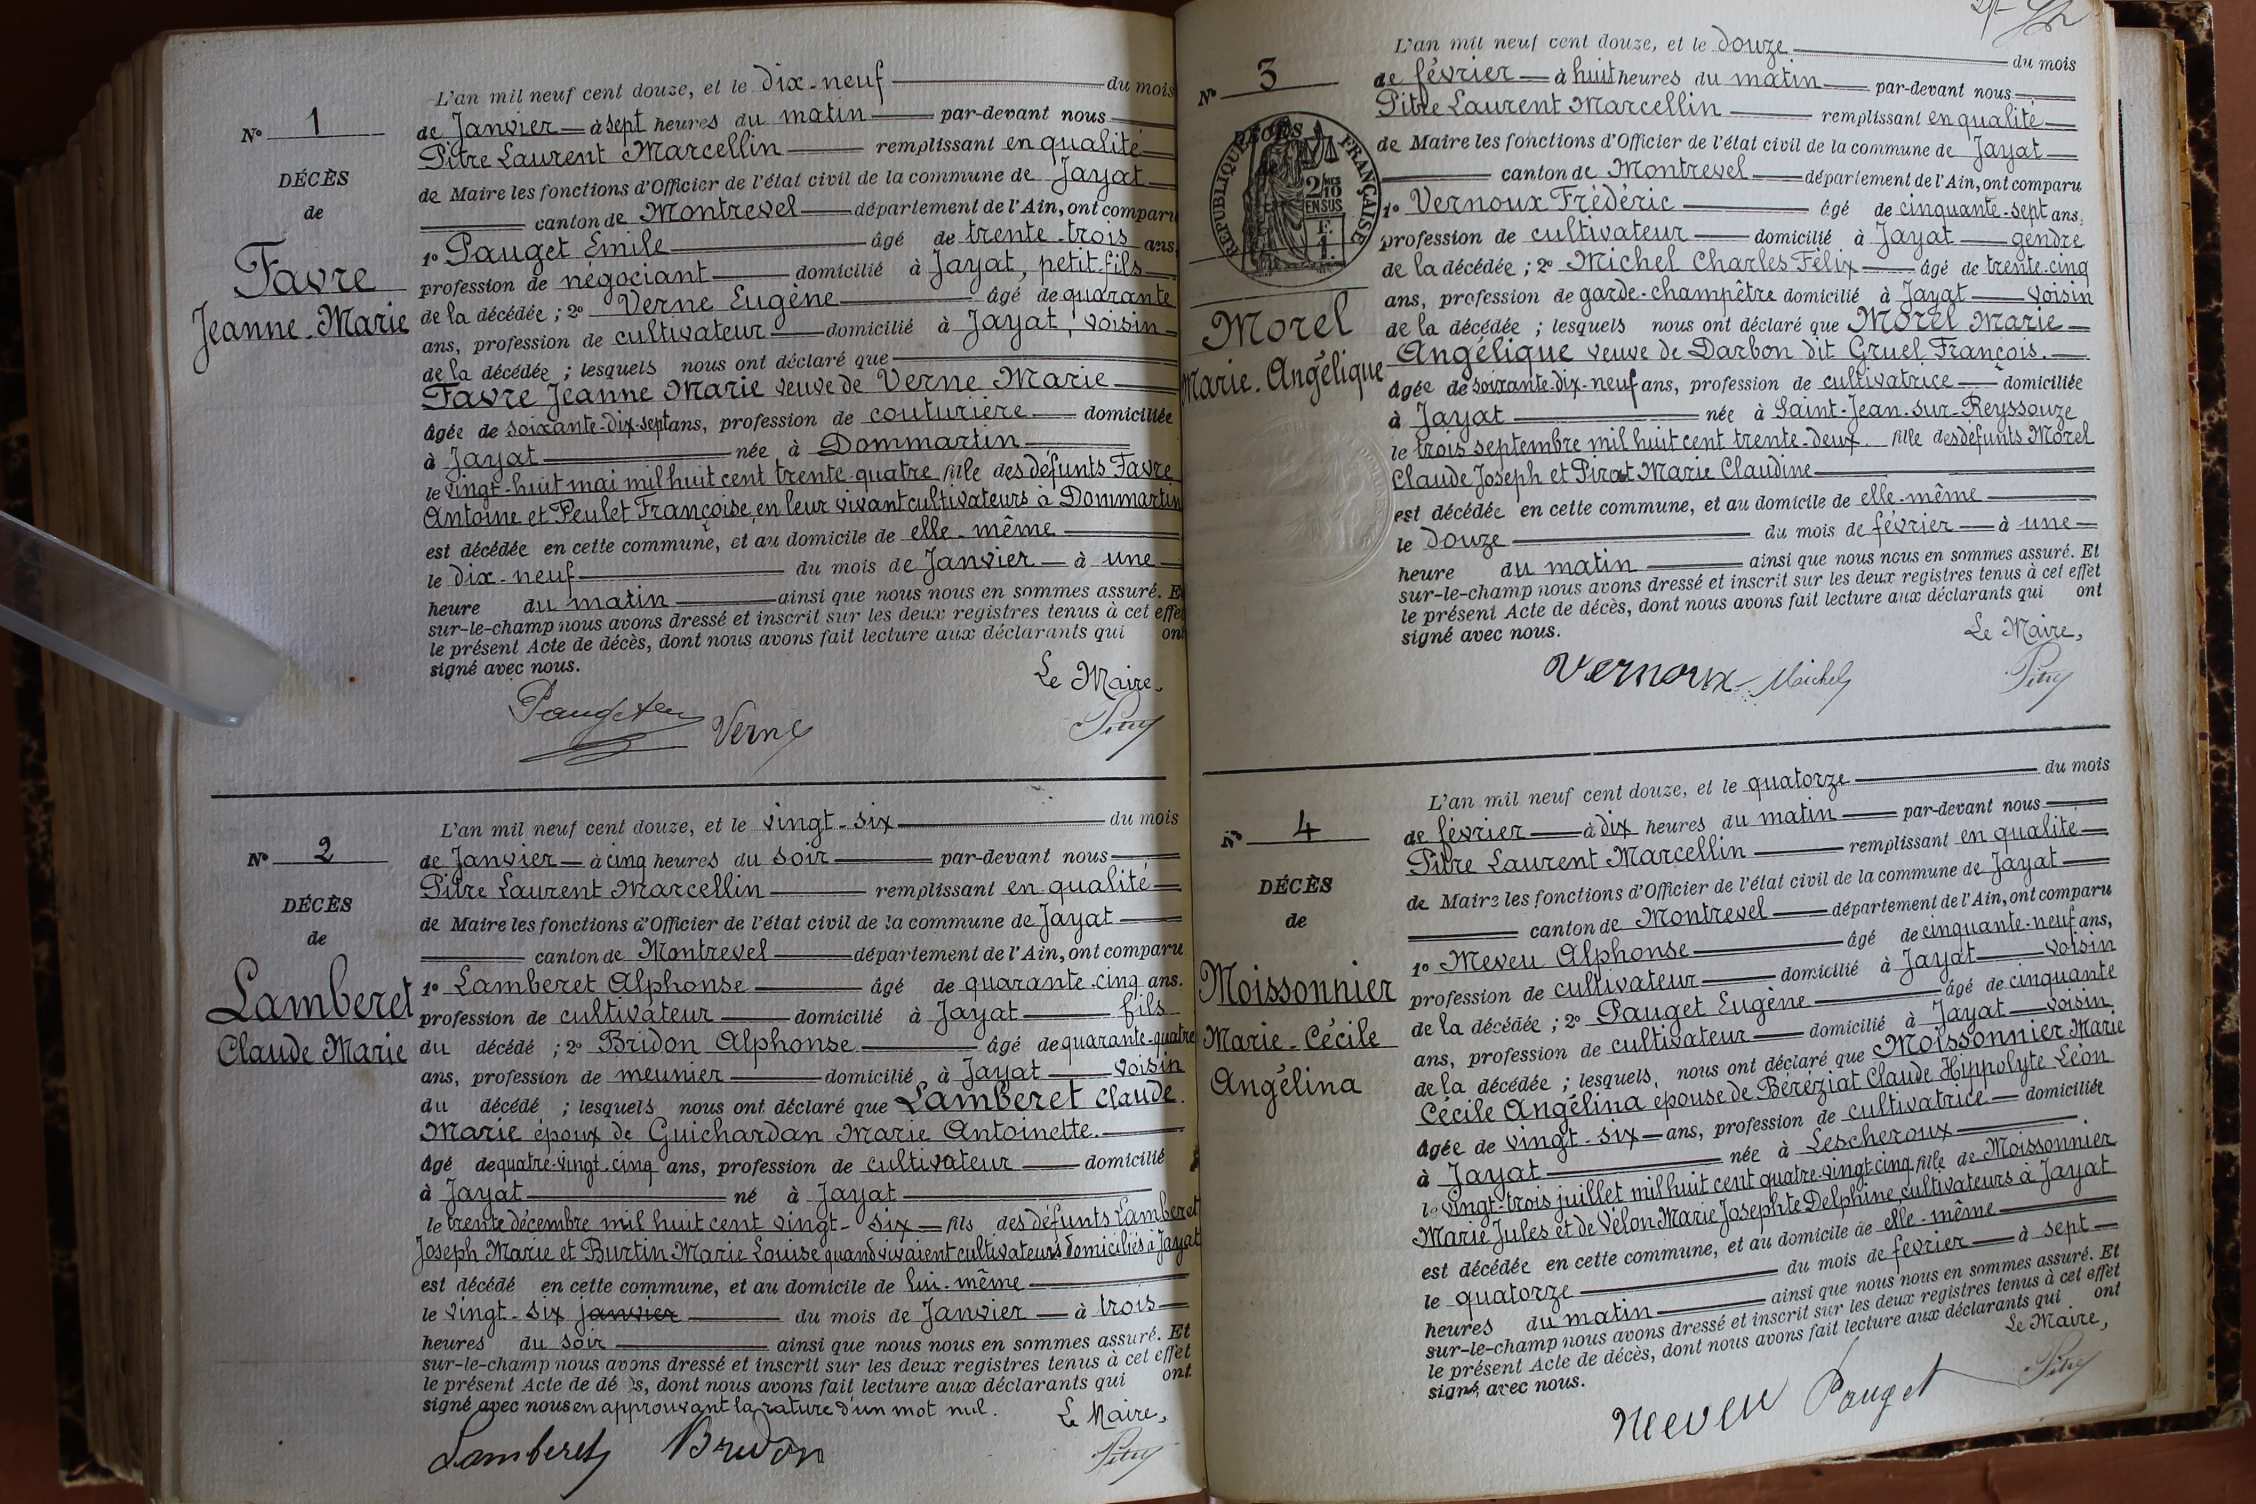 L'an mil neuf cent douze, et le dix-neuf du mois
N° 1
de Janvier à sept heures du matin par-devant nous
Pitre Laurent Marcellin remplissant en qualité
DÉCÈS
de Maire les fonctions d'Officier de l'état civil de la commune de Jayat
de
canton de Montrevel département de l'Ain, ont comparu
Favre
1° Pauget Emile âgé de trente-trois ans,
profession de négociant domicilié à Jayat, petit-fils
Jeanne-Marie
de la décédée ; 2° Verne Eugène âgé de quarante
ans, profession de cultivateur domicilié à Jayat, voisin
de la décédée ; lesquels nous ont déclaré que
Favre Jeanne Marie veuve de Verne Marie
âgée de soixante-dix-sept ans, profession de couturière domiciliée
à Jayat née à Dommartin
le vingt-huit mai mil huit cent trente-quatre fille des défunts Favre
Antoine et Peulet Françoise, en leur vivant cultivateurs à Dommartin
est décédée en cette commune, et au domicile de elle-même
le dix-neuf du mois de Janvier à une
heure du matin ainsi que nous nous en sommes assuré. Et
sur-le-champ nous avons dressé et inscrit sur les deux registres tenus à cet effet
le présent Acte de décès, dont nous avons fait lecture aux déclarants qui ont
signé avec nous.
Le Maire,
Verne
L'an mil neuf cent douze, et le vingt-six du mois
N° 2
de Janvier à cinq heures du soir par-devant nous
Pitre Laurent Marcellin remplissant en qualité
DÉCÈS
de Maire les fonctions d'Officier de l'état civil de la commune de Jayat
de
canton de Montrevel département de l'Ain, ont comparu
Lamberet
1° Lamberet Alphonse âgé de quarante-cinq ans.
profession de cultivateur domicilié à Jayat fils
Claude Marie
du décédé ; 2° Bridon Alphonse âgé de quarante-quatre
ans, profession de meunier domicilié à Jayat voisin
du décédé ; lesquels nous ont déclaré que Lamberet Claude
Marie époux de Guichardan Marie Antoinette.
âgé de quatre-vingt-cinq ans, profession de cultivateur domicilié
à Jayat né à Jayat
le trente décembre mil huit cent vingt-six fils des défunts Lamberet
Joseph Marie et Burtin Marie Louise quand vivaient cultivateurs domiciliés à Jayat
est décédé en cette commune, et au domicile de lui-même
le vingt-six janvier du mois de Janvier à trois
heures du soir ainsi que nous nous en sommes assuré. Et
sur-le-champ nous avons dressé et inscrit sur les deux registres tenus à cet effet
le présent Acte de dé s, dont nous avons fait lecture aux déclarants qui ont
signé avec nous en approuvant la rature d'un mot nul.
Le Maire,
Lamberet Bridon
L'an mil neuf cent douze, et le douze du mois
N° 3
de février à huit heures du matin par-devant nous
Pitre Laurent Marcellin remplissant en qualité
DÉCÈS
RÉPUBLIQUE FRANÇAISE
2/10 EN SUS
de Maire les fonctions d'Officier de l'état civil de la commune de Jayat
canton de Montrevel département de l'Ain, ont comparu
1° Vernoux Frédéric âgé de cinquante-sept ans,
profession de cultivateur domicilié à Jayat gendre
de la décédée ; 2° Michel Charles Félix âgé de trente-cinq
ans, profession de garde-champêtre domicilié à Jayat voisin
Morel
de la décédée ; lesquels nous ont déclaré que Morel Marie
Marie-Angélique
Angélique veuve de Darbon dit Gruel François.
âgée de soixante-dix-neuf ans, profession de cultivatrice domiciliée
à Jayat née à Saint-Jean-sur-Reyssouze
le trois septembre mil huit cent trente-deux fille des défunts Morel
Claude Joseph et Pirat Marie Claudine
est décédée en cette commune, et au domicile de elle-même
le douze du mois de février à une
heure du matin ainsi que nous nous en sommes assuré. Et
sur-le-champ nous avons dressé et inscrit sur les deux registres tenus à cet effet
le présent Acte de décès, dont nous avons fait lecture aux déclarants qui ont
signé avec nous.
Le Maire,
Vernoux Michel
L'an mil neuf cent douze, et le quatorze du mois
N° 4
de février à dix heures du matin par-devant nous
Pitre Laurent Marcellin remplissant en qualité
DÉCÈS
de Maire les fonctions d'Officier de l'état civil de la commune de Jayat
de
canton de Montrevel département de l'Ain, ont comparu
1° Meveu Alphonse âgé de cinquante-neuf ans,
Moissonnier
profession de cultivateur domicilié à Jayat voisin
Marie-Cécile
de la décédée ; 2° Pauget Eugène âgé de cinquante
Angélina
ans, profession de cultivateur domicilié à Jayat voisin
de la décédée ; lesquels nous ont déclaré que Moissonnier Marie
Cécile Angélina épouse de Béréziat Claude Hippolyte Léon
âgée de vingt-six ans, profession de cultivatrice domiciliée
à Jayat née à Lescheroux
le vingt-trois juillet mil huit cent quatre-vingt cinq fille de Moissonnier
Marie Jules et de Vélon Marie Josephte Delphine, cultivateurs à Jayat
est décédée en cette commune, et au domicile de elle-même
le quatorze du mois de février à sept
heures du matin ainsi que nous nous en sommes assuré. Et
sur-le-champ nous avons dressé et inscrit sur les deux registres tenus à cet effet
le présent Acte de décès, dont nous avons fait lecture aux déclarants qui ont
signé avec nous.
Le Maire,
Meveu Pauget